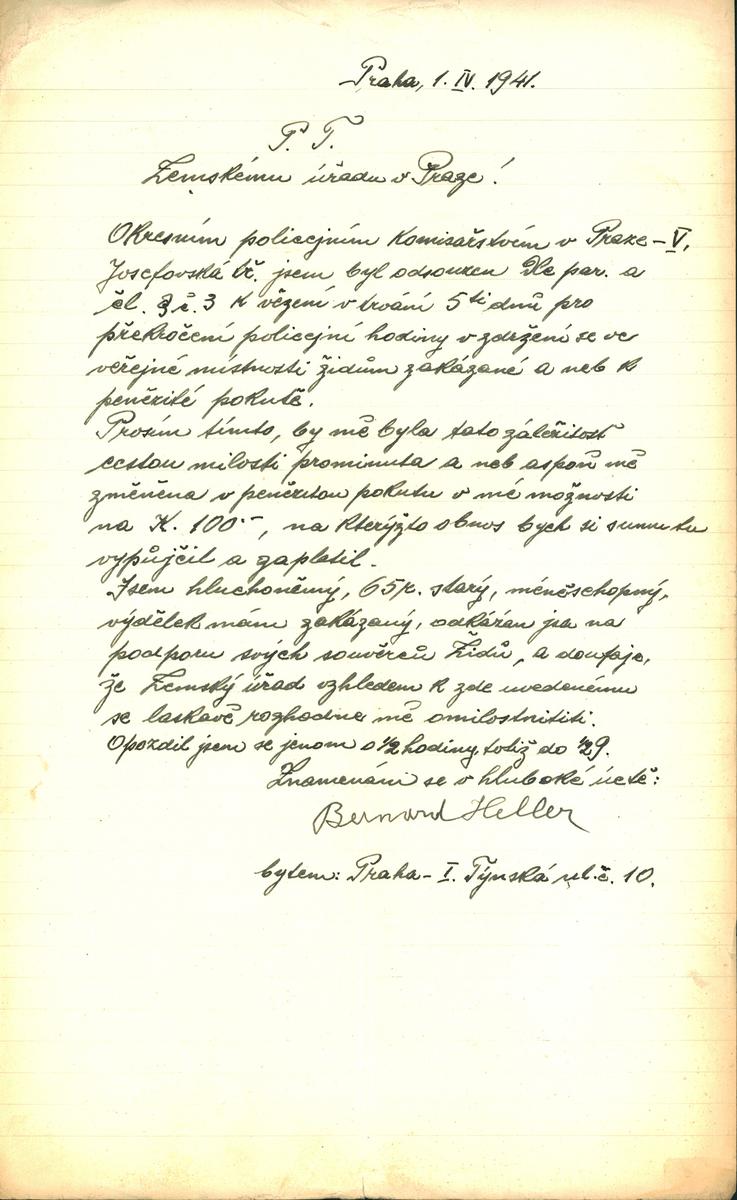 Praha, 1. IV. 1941.
P. T.
Zemskému úřadu v Praze!
Okresním policejním komisařstvém v Praze-V,
Josefovská tř. jsem byl odsouzen dle par. a
čl. 3 č. 3 k vězení v trvání 5ti dnů pro
překročení policejní hodiny v zdržení se ve
veřejné místnosti židům zakázané a neb k
peněžité pokutě.
Prosím tímto, by mě byla tato záležitost
cestou milosti prominuta a neb aspoň mě
změněna v peněžitou pokutu v mé možnosti
na K. 100.-, na kterýžto obnos bych si sumu tu
vypůjčil a zaplatil.
Jsem hluchoněmý, 65r. starý, méněschopný,
výdělek mám zakázaný, odkázán jsa na
podporu svých souvěrců Židů, a doufaje,
že Zemský úřad vzhledem k zde uvedenému
se laskavě rozhodne mě omilostnititi.
Opozdil jsem se jenom o 1/2 hodiny, totiž do 1/29.
Znamenám se v hluboké úctě:
Bernard Heller
bytem: Praha-I. Týnská ul. č. 10.